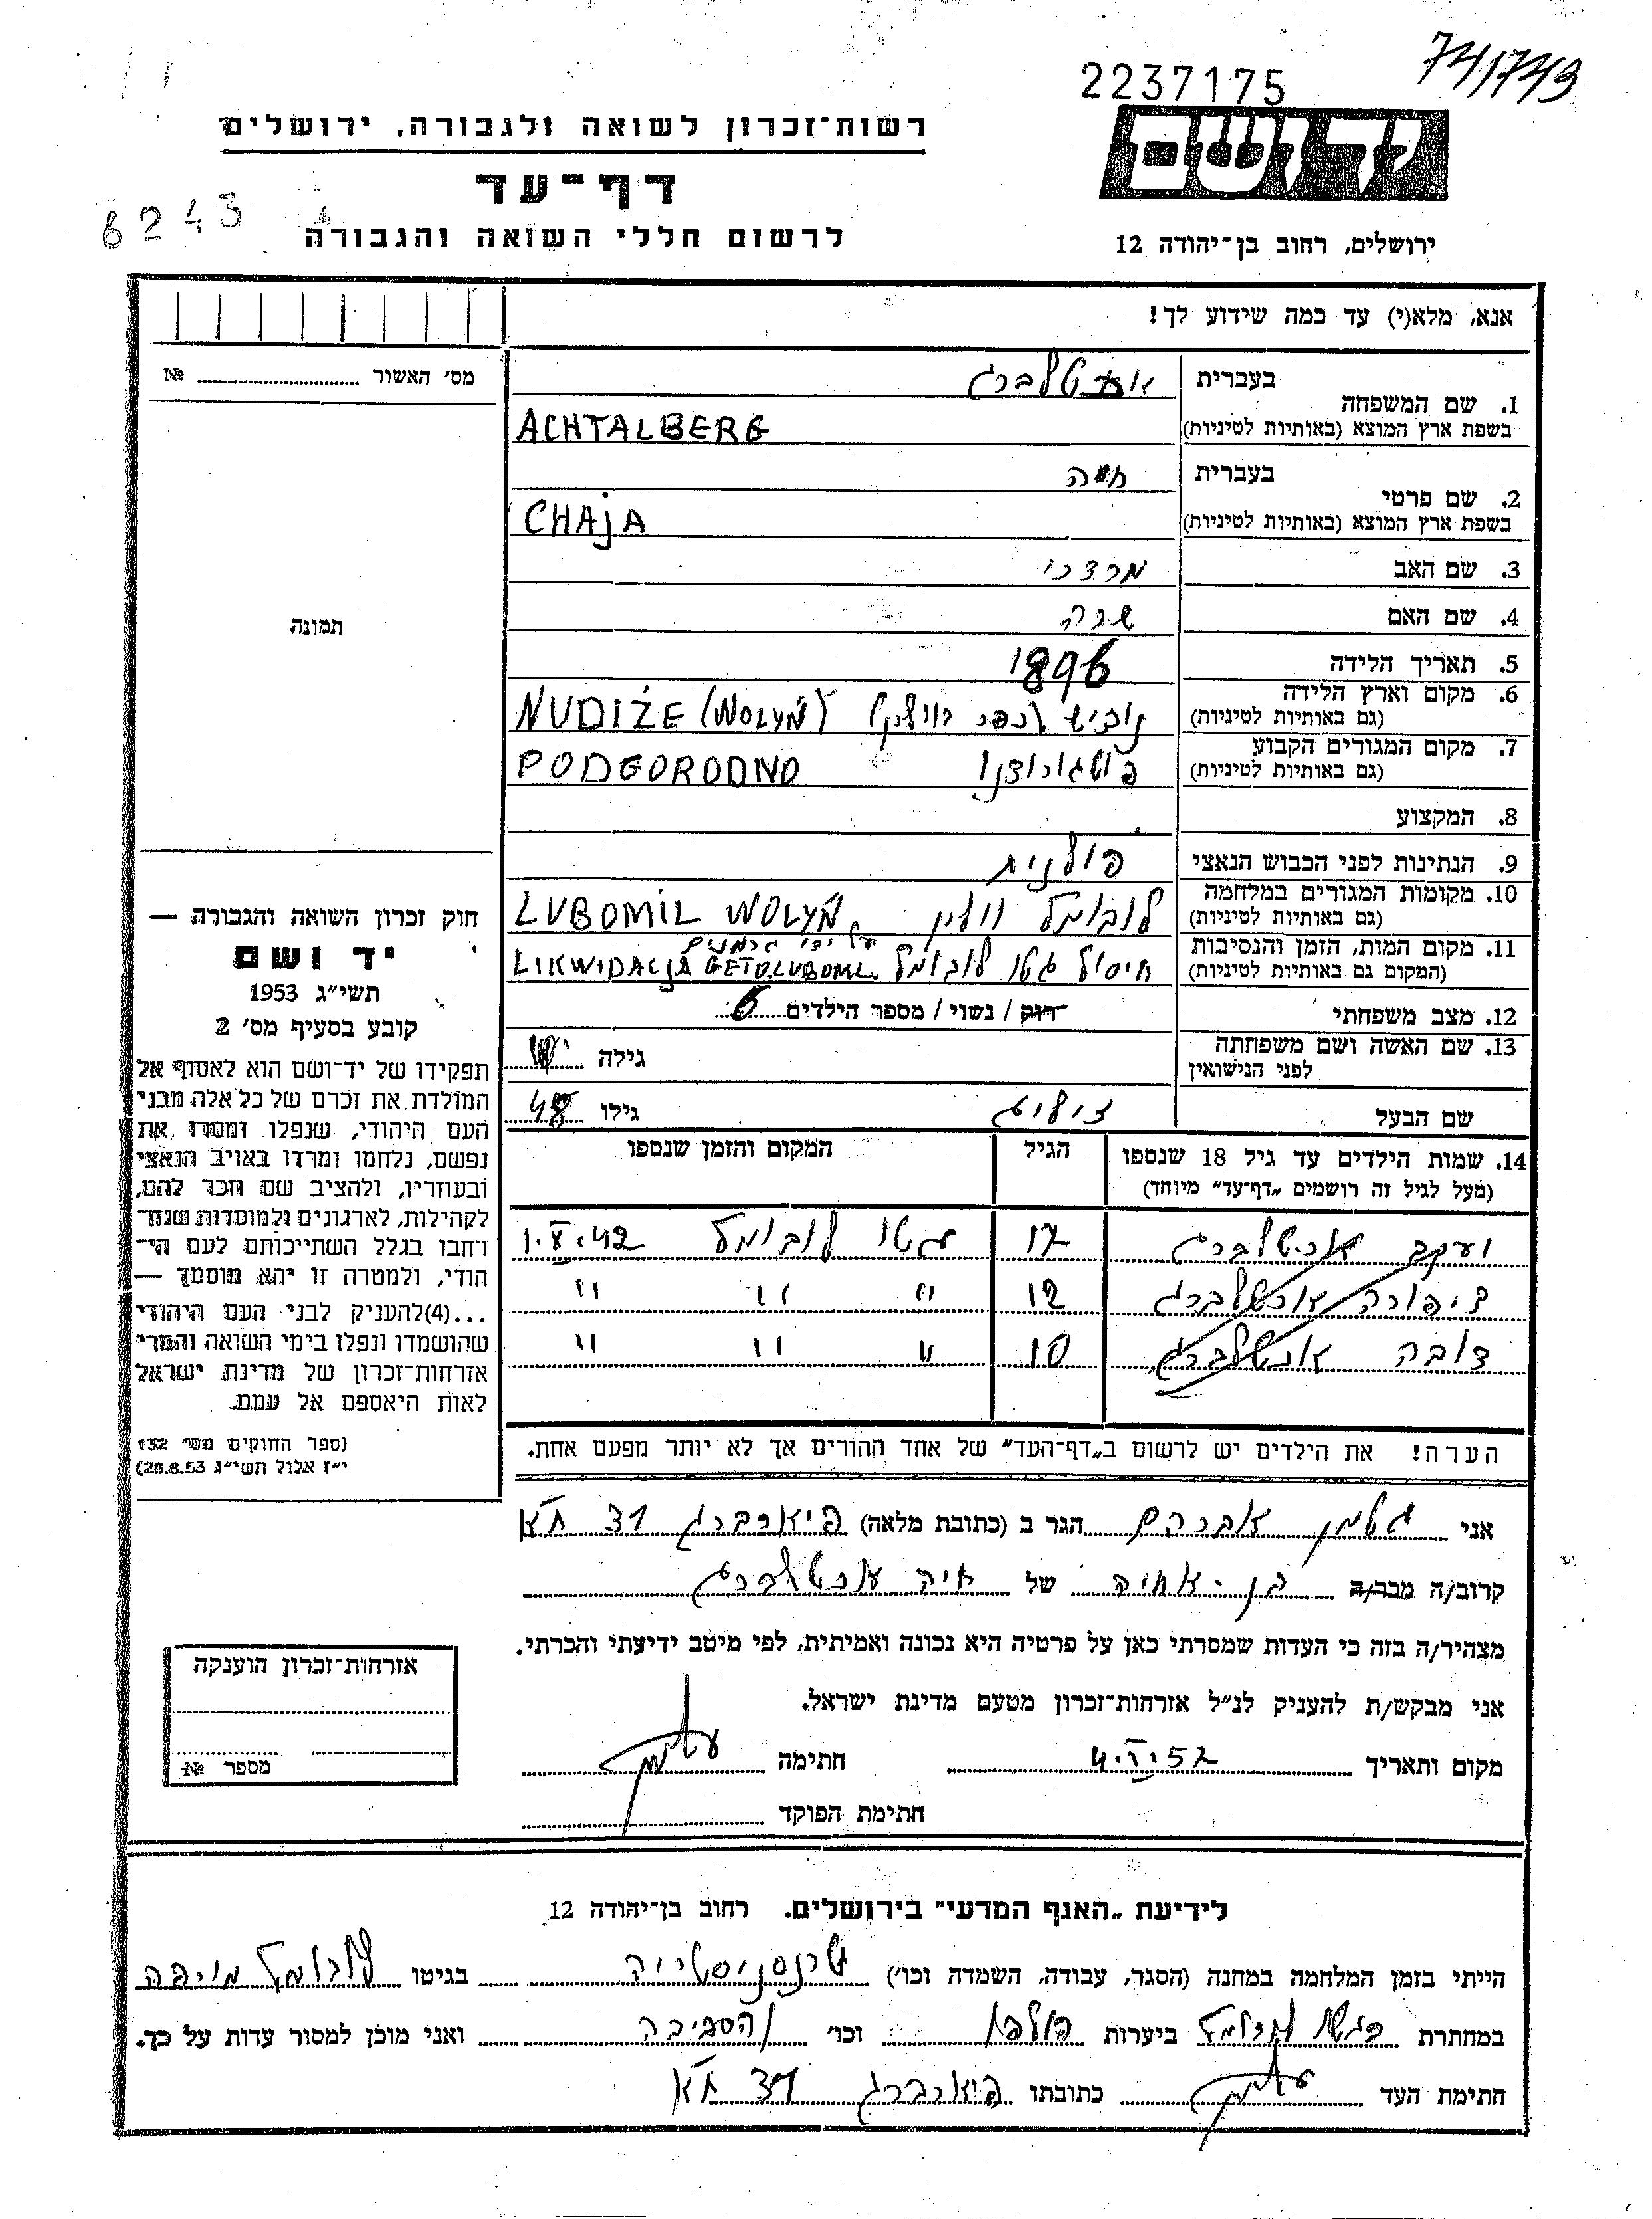 2237175
74/1743
רשות־זכרון לשואה ולגבורה, ירושלים
ידושם
דף־עד
6243
לרשום חללי השואה והגבורה
ירושלים, רחוב בן־יהודה 12
אנא, מלא(י) עד כמה שידוע לך!
מס׳ האשור № 
תמונה
1. שם המשפחה
בעברית
בשפת ארץ המוצא (באותיות לטיניות)
ACHTALBERG
2. שם פרטי
בעברית חיה
בשפת ארץ המוצא (באותיות לטיניות)
CHAJA
3. שם האב מרדכי
4. שם האם שרה
5. תאריך הלידה 1896
6. מקום וארץ הלידה
(גם באותיות לטיניות)
NUDIŻE (WOLYŃ)
7. מקום המגורים הקבוע
(גם באותיות לטיניות)
PODGORODNO
8. המקצוע
9. הנתינות לפני הכבוש הנאצי פולנית
10. מקומות המגורים במלחמה
(גם באותיות לטיניות)
לובומל ווולין LUBOMIL WOLYŃ
11. מקום המות, הזמן והנסיבות
(המקום גם באותיות לטיניות)
על ידי גרמנים
חיסול גטו לובומל LIKWIDACJA GETO LUBOML
12. מצב משפחתי
רווק / נשוי / מספר הילדים 6
13. שם האשה ושם משפחתה
לפני הנישואין
גילה
שם הבעל זיליג גילו 48
14. שמות הילדים עד גיל 18 שנספו
(מעל לגיל זה רושמים „דף־עד״ מיוחד)
הגיל
המקום והזמן שנספו
יעקב אכטלברג 17 גטו לובומל 1.X.42
ציפורה אכטלברג 12 " " "
דובה אכטלברג 10 " " "
הערה! את הילדים יש לרשום ב„דף־העד״ של אחד ההורים אך לא יותר מפעם אחת.
חוק זכרון השואה והגבורה —
יד ושם
תשי״ג 1953
קובע בסעיף מס׳ 2
תפקידו של יד־ושם הוא לאסוף אל
המולדת את זכרם של כל אלה מבני
העם היהודי, שנפלו ומסרו את
נפשם, נלחמו ומרדו באויב הנאצי
ובעוזריו, ולהציב שם וזכר להם,
לקהילות, לארגונים ולמוסדות שנח־
רחבו בגלל השתייכותם לעם הי־
הודי, ולמטרה זו יהא מוסמך —
...(4)להעניק לבני העם היהודי
שהושמדו ונפלו בימי השואה והמרי
אזרחות־זכרון של מדינת ישראל
לאות היאספם אל עמם.
(ספר החוקים מס׳ 132
י״ז אלול תשי״ג 28.8.53)
אני גטמן אברהם הגר ב (כתובת מלאה) פיארברג 31 ת״א
קרוב/ה מכר/ה בן־אחיה של חיה אכטלברג
מצהיר/ה בזה כי העדות שמסרתי כאן על פרטיה היא נכונה ואמיתית, לפי מיטב ידיעתי והכרתי.
אני מבקש/ת להעניק לנ״ל אזרחות־זכרון מטעם מדינת ישראל.
מקום ותאריך חתימה
חתימת הפוקד
אזרחות־זכרון הוענקה
מספר №
לידיעת „האגף המדעי״ בירושלים. רחוב בן־יהודה 12
הייתי בזמן המלחמה במחנה (הסגר, עבודה, השמדה וכו׳) טרנסניסטריה בגיטו לובומל
במחתרת ביערות וכו׳ והסביבה ואני מוכן למסור עדות על כך.
חתימת העד כתובתו פיארברג 31 ת״א